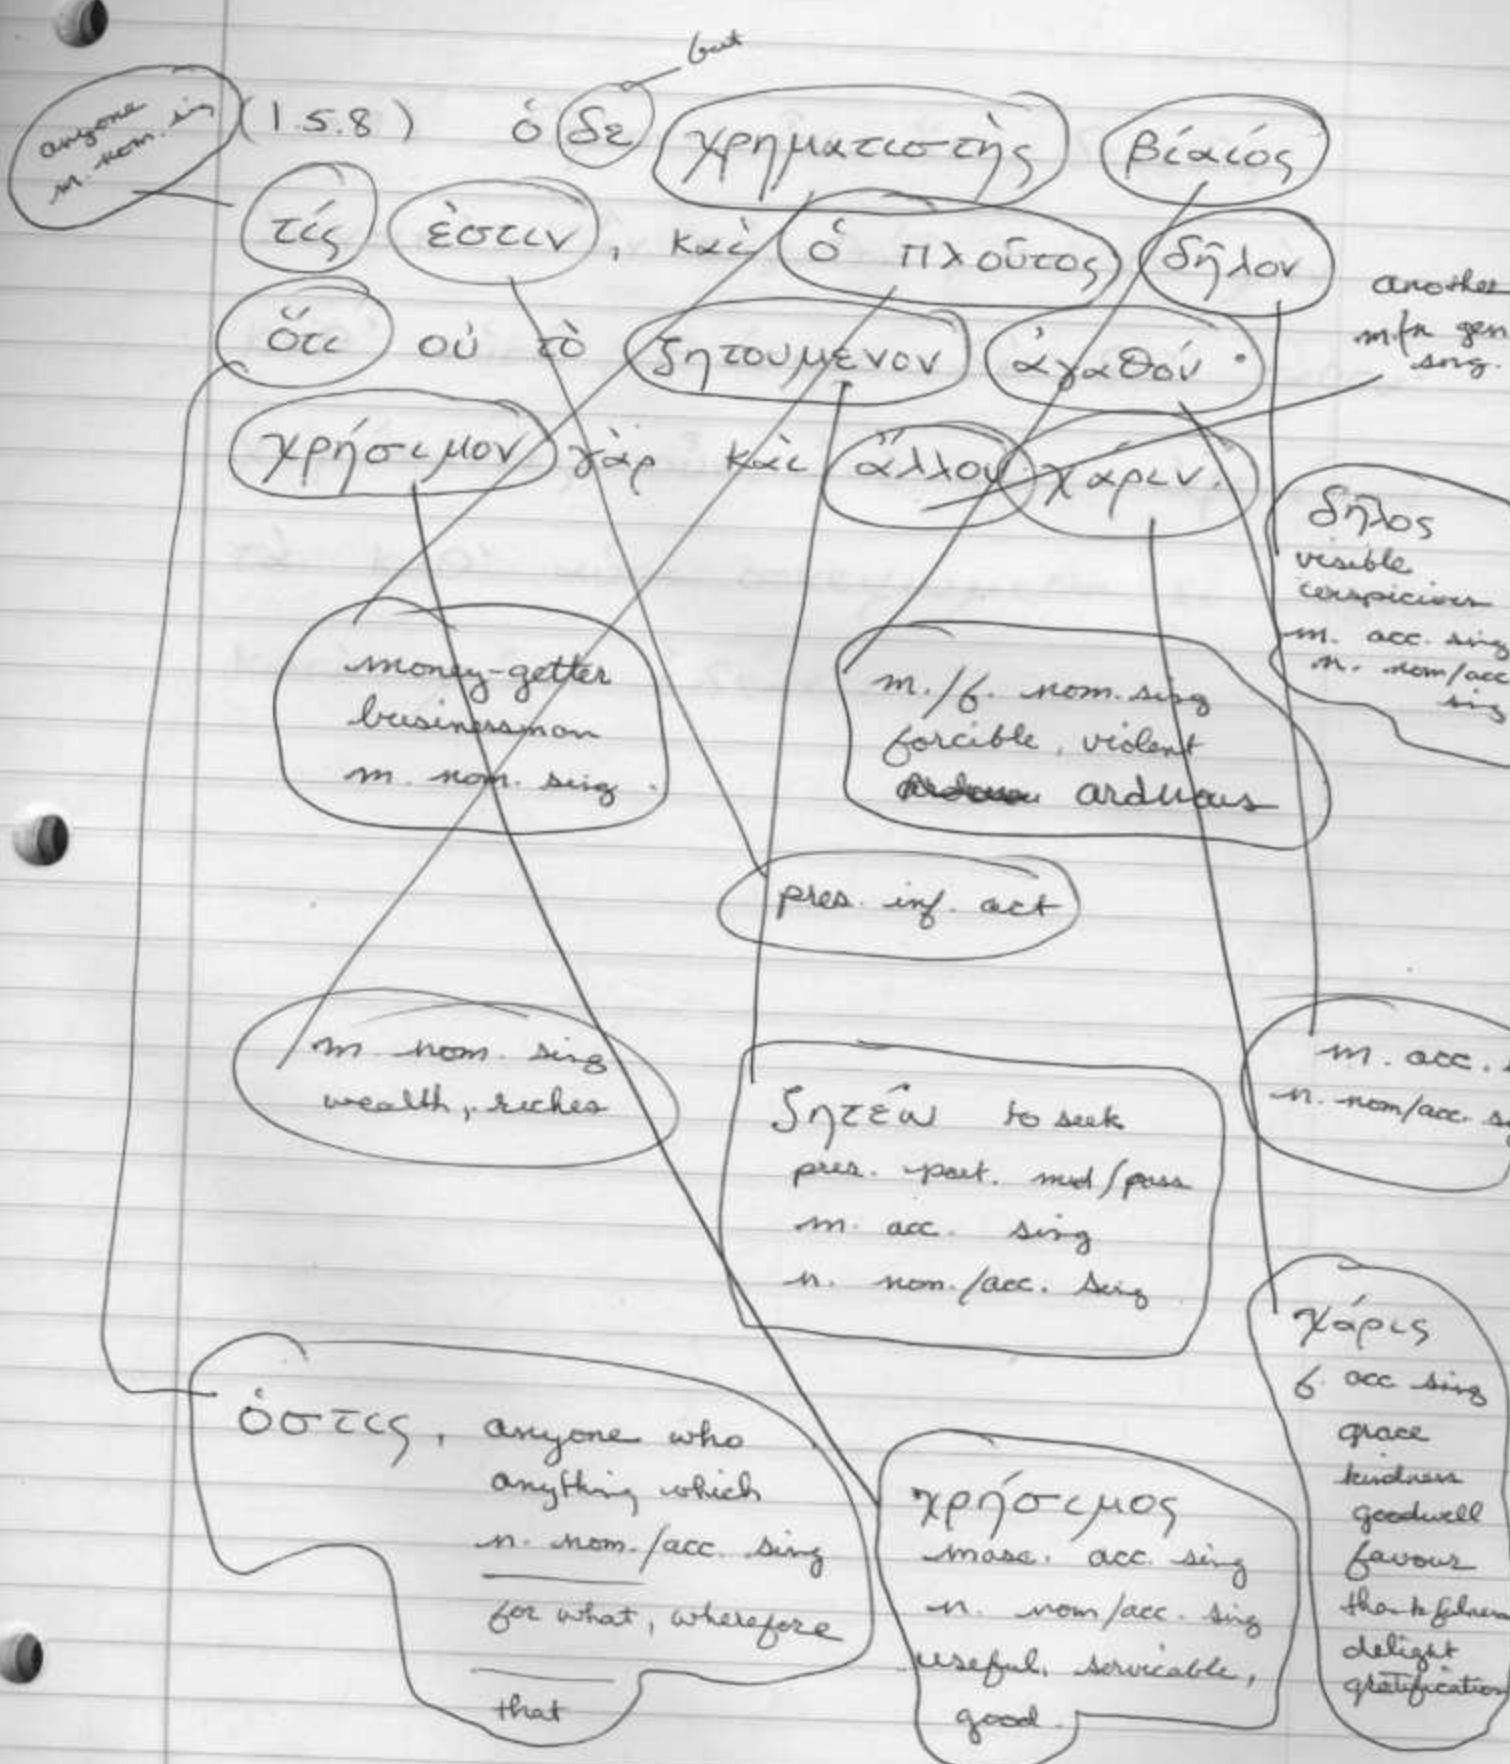 but
anyone
m. nom. sing
(1.5.8) ὁ δὲ χρηματιστὴς βίαιός
τίς ἐστιν, καὶ ὁ πλοῦτος δῆλον
ὅτι οὐ τὸ ζητουμενον ἀγαθόν·
χρήσιμον γὰρ καὶ ἄλλου χάριν.
another
m./n gen
sing.
δῆλος
visible
m. acc. sing
n. nom/acc
sing
money-getter
businessman
m. nom. sing.
m./f. nom. sing
forcible, violent
arduous
pres. inf. act
m nom. sing
wealth, riches
ζητέω to seek
pres. part. med/pass
m. acc. sing
n. nom./acc. sing
m. acc.
n. nom/acc.
χάρις
f. acc sing
grace
kindness
goodwell
favour
delight
gratification
ὁστις, anyone who,
anything which
n. nom./acc. sing
for what, wherefore
that
χρήσιμος
masc. acc. sing
n. nom/acc. sing
useful, servicable,
good.